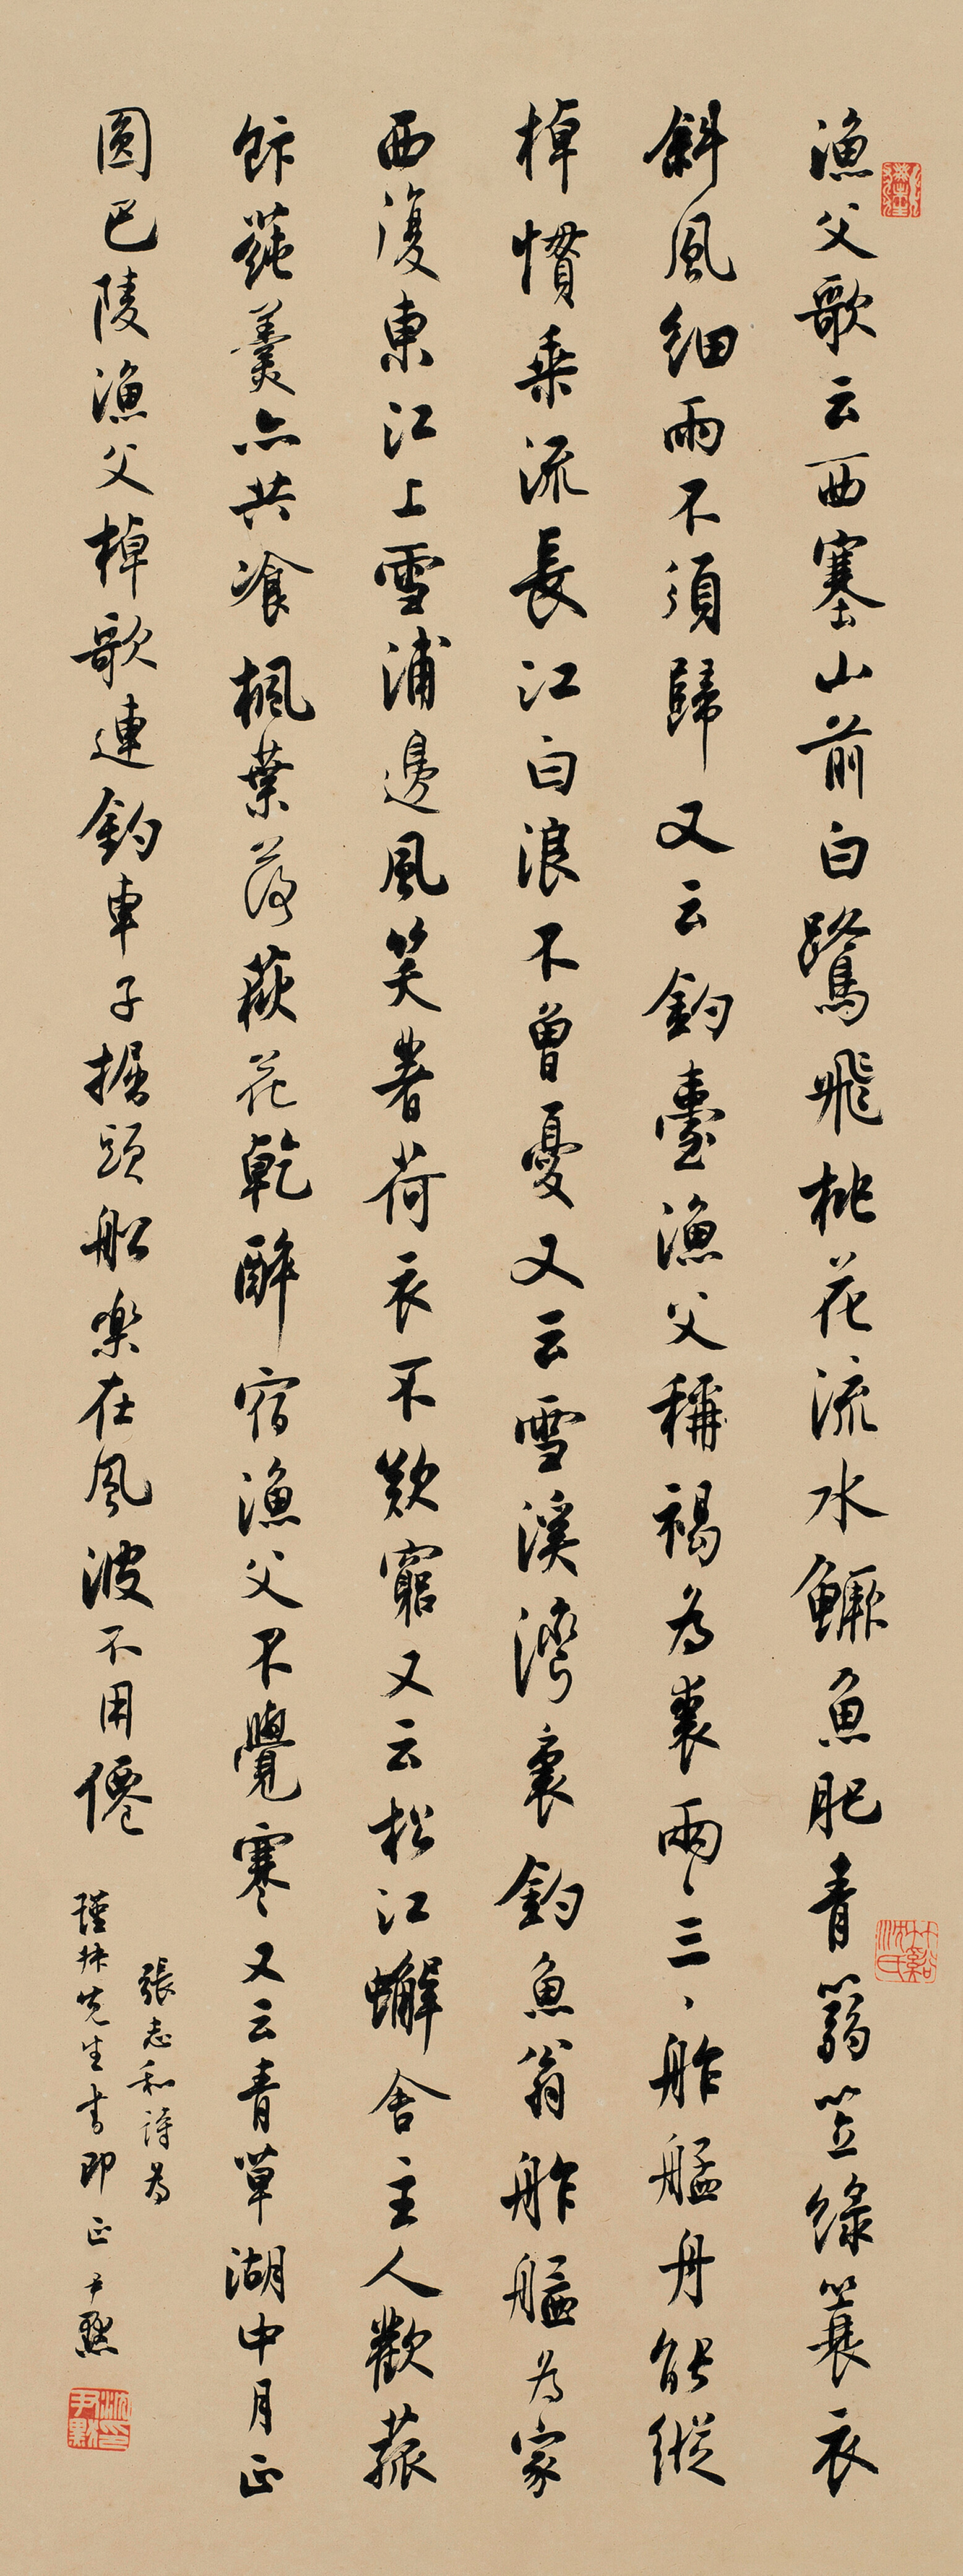 漁父歌云西塞山前白鷺飛桃花流水鱖魚肥青篛笠綠簑衣
斜風細雨不須歸又云釣臺漁父稱褐為裘兩、三、舴艋舟能縱
棹慣乘流長江白浪不曾憂又云雪溪灣裏釣魚翁舴艋為家
西復東江上雪浦邊風笑著荷衣不歎窮又云松江蠏舍主人歡菰
飰蓴羹亦共飡楓葉落荻花乾醉宿漁父不覺寒又云青草湖中月正
圓巴陵漁父棹歌連釣車子掘頭船樂在風波不用僊
張志和詩為
瑾先生書即正 尹默
竹谿沈氏
沈尹默印